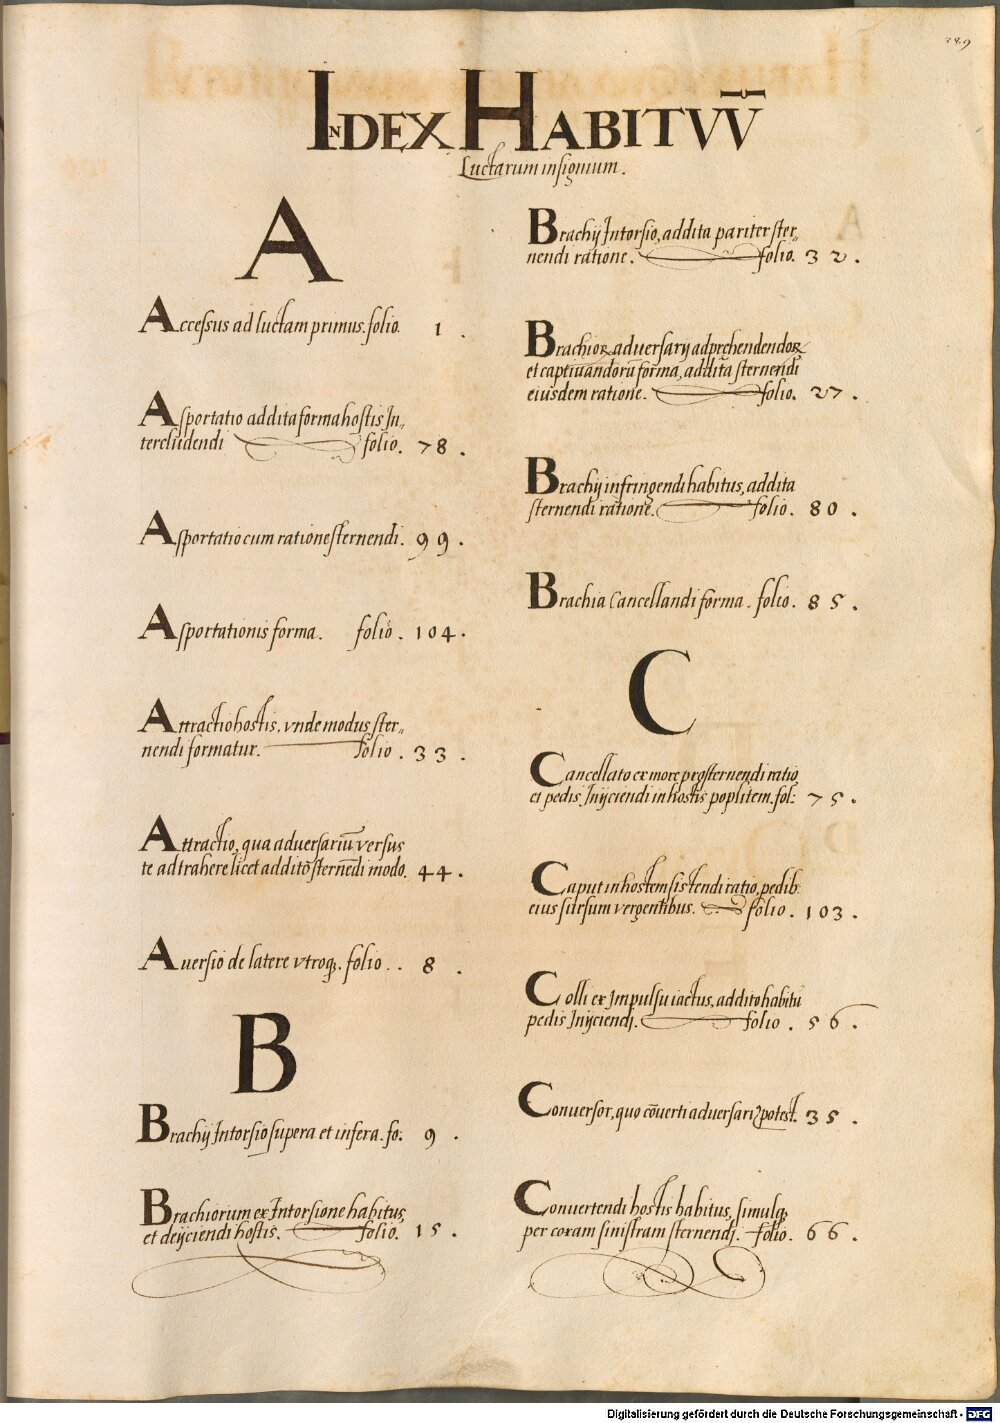 289
INDEX HABITVV̄
Luctarum insignium.
A
Accessus ad luctam primus. folio. 1.
Asportatio addita forma hostis In„
tercludendi folio. 78.
Asportatio cum ratione sternendi. 99.
Asportationis forma. folio. 104.
Attractio hostis, vnde modus ster„
nendi formatur. folio. 33.
Attractio, qua aduersariū versus
te adtrahere licet additō sternēdi modo. 44.
Auersio de latere vtroq;. folio.. 8.
B
Brachij Intorsio supera et infera. fo: 9.
Brachiorum ex Intorsione habitus,
et deijciendi hostis. folio. 15.
Brachij Intorsio, addita pariter ster„
nendi ratione. folio. 32.
Brachioꝝ aduersarij adpręhendendoꝝ
et captiuandorū forma, addita sternendi
eiusdem ratione. folio. 27.
Brachij infringendi habitus, addita
sternendi ratione. folio. 80.
Brachia Cancellandi forma. folio. 85.
C
Cancellato ex more prosternendi ratio,
et pedis Inijciendi in hostis poplitem. fol: 75.
Caput in hostem sistendi ratio, pedib:
eius sursum vergentibus. folio. 103.
Colli ex Impulsu iactus, addito habitu
pedis Inijciendi. folio. 56.
Conuersor, quo cōuerti aduersariꝰ potest. 35.
Conuertendi hostis habitus, simulq;
per coxam sinistram sternendi. folio. 66.
Digitalisierung gefördert durch die Deutsche Forschungsgemeinschaft - DFG